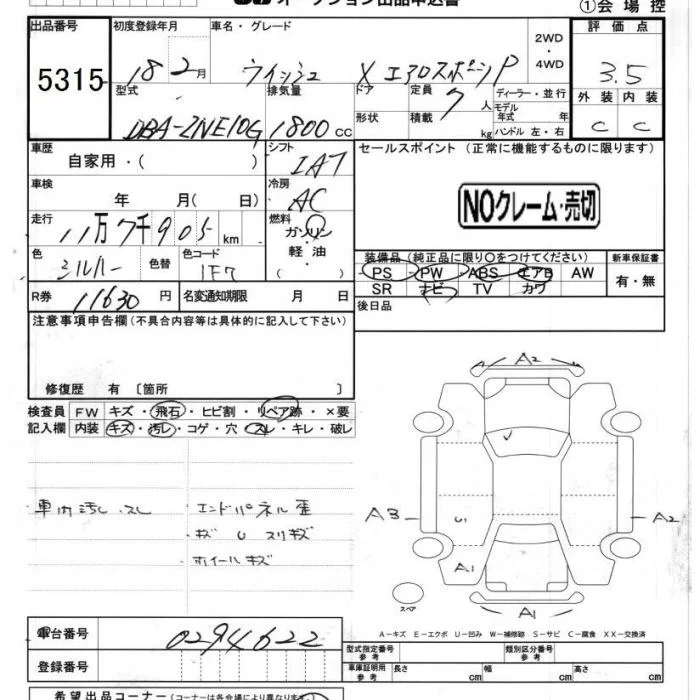 オークション出品申込書
①会場控
出品番号 初度登録年月 車名・グレード 2WD・4WD 評価点
5315 18 2月 ウィッシュ X エアロスポーツP 3.5
型式 排気量 ドア 定員 7人 ディーラー・並行 外装 内装
DBA-ZNE10G 1800cc 形状 積載 kg モデル年式 年 C C
ハンドル 左・右
車歴 シフト セールスポイント (正常に機能するものに限ります)
自家用・( ) IAT
車検 冷房
年 月(日) AC
NOクレーム・売切
走行 11万7千905km 燃料 ガソリン・軽油
装備品 (純正品に限り○をつけてください) 新車保証書
色 シルバー 色替 色コード 1F7 ( )
PS PW ABS エアB AW 有・無
SR ナビ TV カワ
R券 11630円 名変通知期限 月 日 後日品
注意事項申告欄 (不具合内容等は具体的に記入して下さい)
修復歴 有 〔箇所 〕
検査員 FW キズ・飛石・ヒビ割・リペア跡・×要
記入欄 内装 キズ・汚レ・コゲ・穴・スレ・キレ・破レ
A2
車内汚レ.スレ エンドパネル歪
キズ U スリキズ
ホイールキズ
A3 U1 A2
A1
スペア A1
A-キズ E-エクボ U-凹み W-補修跡 S-サビ C-腐食 XX-交換済
車台番号 0294622
型式指定番号 参考 類別区分番号 参考
登録番号 車庫証明用 参考 長さ cm 幅 cm 高さ cm
希望出品コーナー (コーナーは各会場により異なります